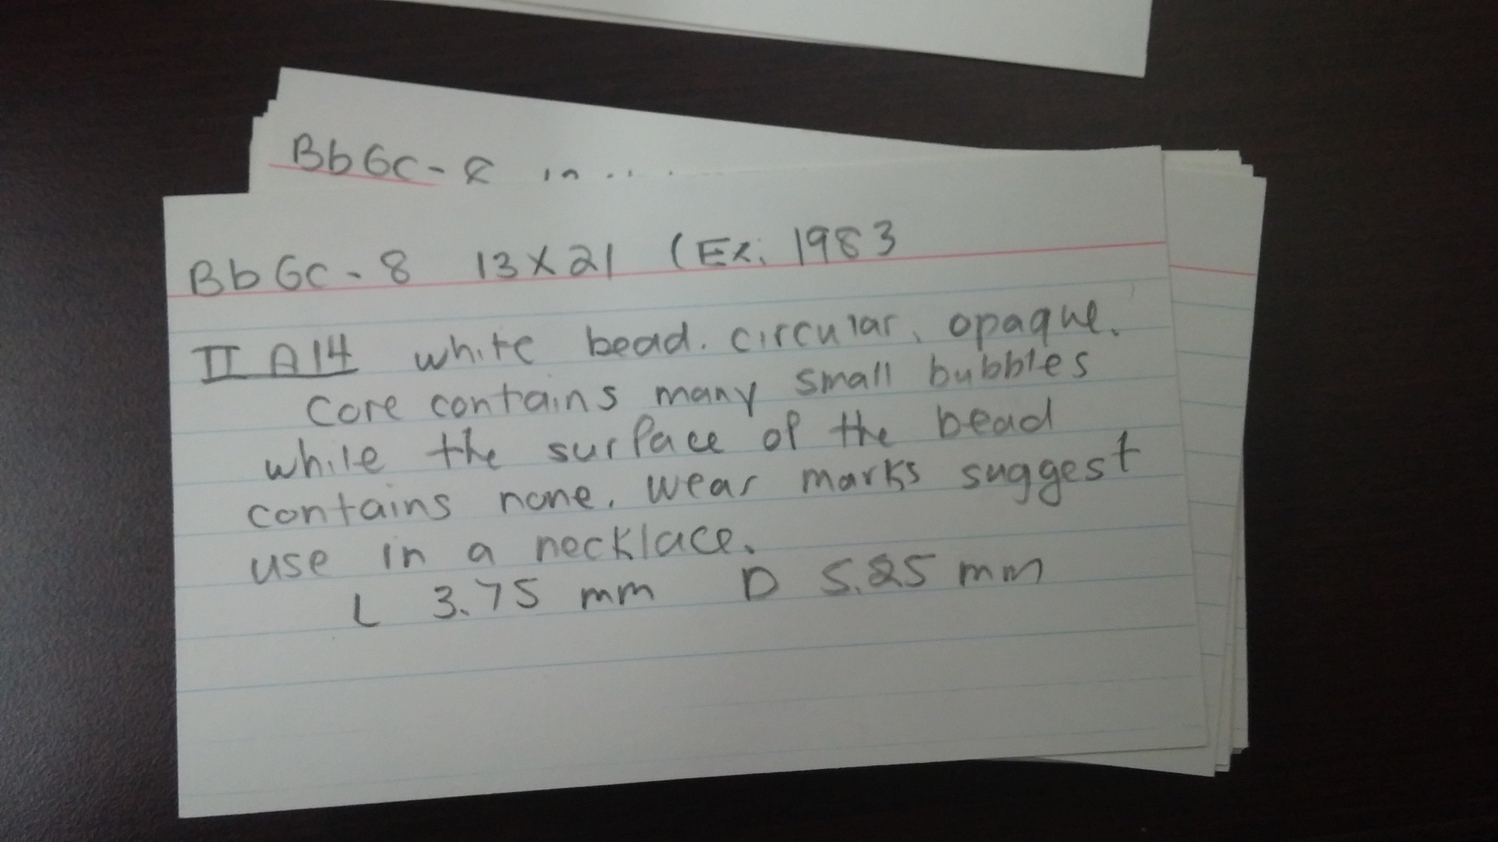 BbGc - 8
BbGc - 8 13 X 21 (Ex. 1983
II A14 white bead. circular, opaque.
Core contains many small bubbles
while the surface of the bead
contains none. wear marks suggest
use in a necklace.
L 3.75 mm D 5.25 mm